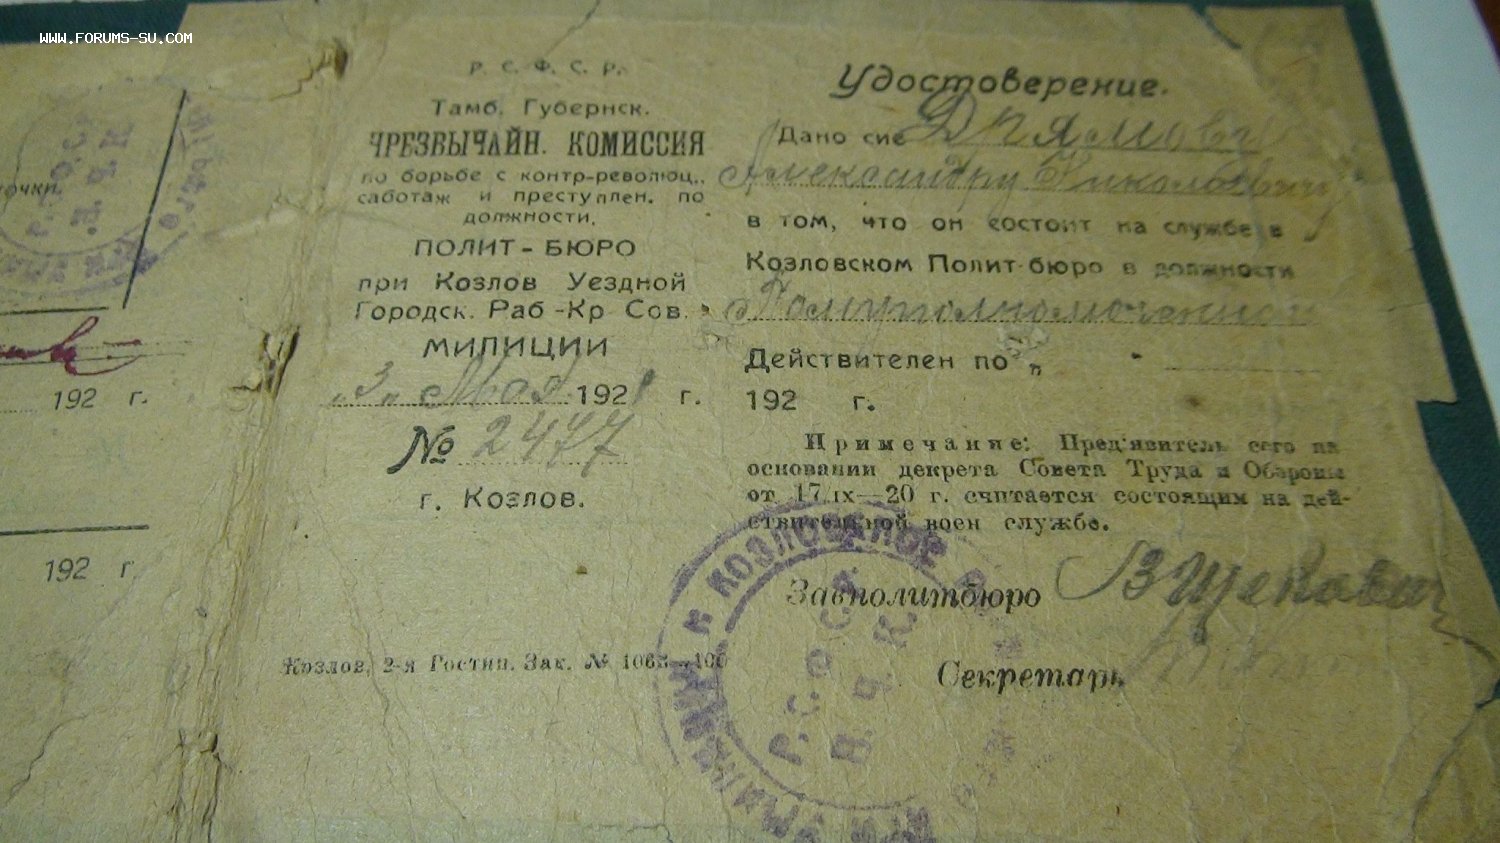 WWW.FORUMS-SU.COM
Р. С. Ф. С. Р.
Тамб. Губернск.
ЧРЕЗВЫЧАЙН. КОМИССИЯ
по борьбе с контр-революц.,
саботаж и преступлен. по
должности.
ПОЛИТ-БЮРО
при Козлов Уездной
Городск. Раб-Кр Сов.
МИЛИЦИИ
„3„ Мая 1921 г.
№ 2477
г. Козлов.
Козлов, 2-я Гостип. Зак. №
Удостоверение.
Дано сие
Александру Николаевичу
в том, что он состоит на службе в
Козловском Полит-бюро в должности
Помуполномоченного
Действителен по „
192 г.
Примечание: Пред'явитель сего на
основании декрета Совета Труда и Обороны
от 17/ıx—20 г. считается состоящим на дей-
ствительной воен службе.
Завполитбюро
Секретарь
КОЗЛОВСКОЕ
Р.С.Ф.С.Р.
В.Ч.К.
192 г.
192 г.